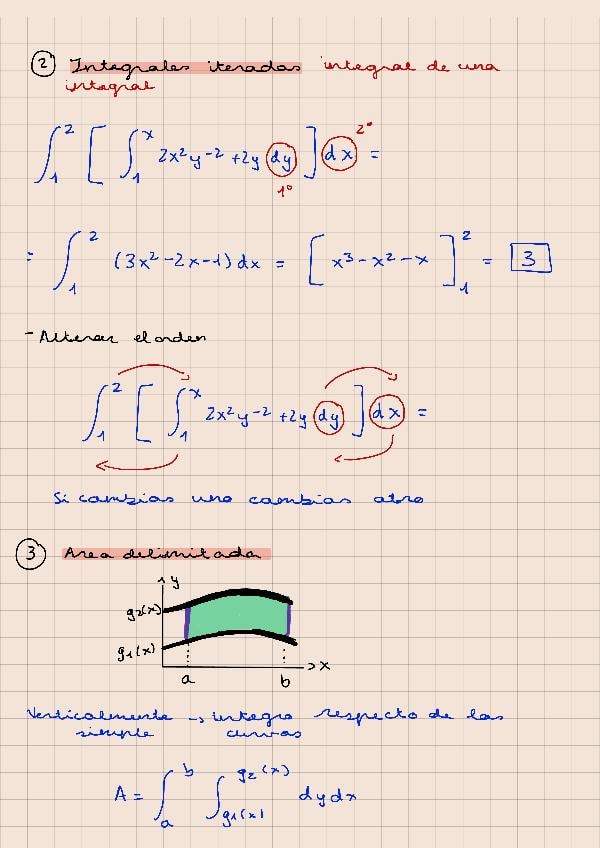 2 Integrales iteradas integral de una
integral
∫₁² [ ∫₁ˣ 2x²y⁻² + 2y dy ] dx =
1º 2º
= ∫₁² (3x² - 2x - 1) dx = [ x³ - x² - x ]₁² = 3
- Alterar el orden
∫₁² [ ∫₁ˣ 2x²y⁻² + 2y dy ] dx =
Si cambias uno cambias otro
3 Area delimitada
y
g₂(x)
g₁(x)
x
a b
Verticalmente → integro respecto de las
simple curvas
A = ∫ₐᵇ ∫g₁(x)^g₂(x) dy dx